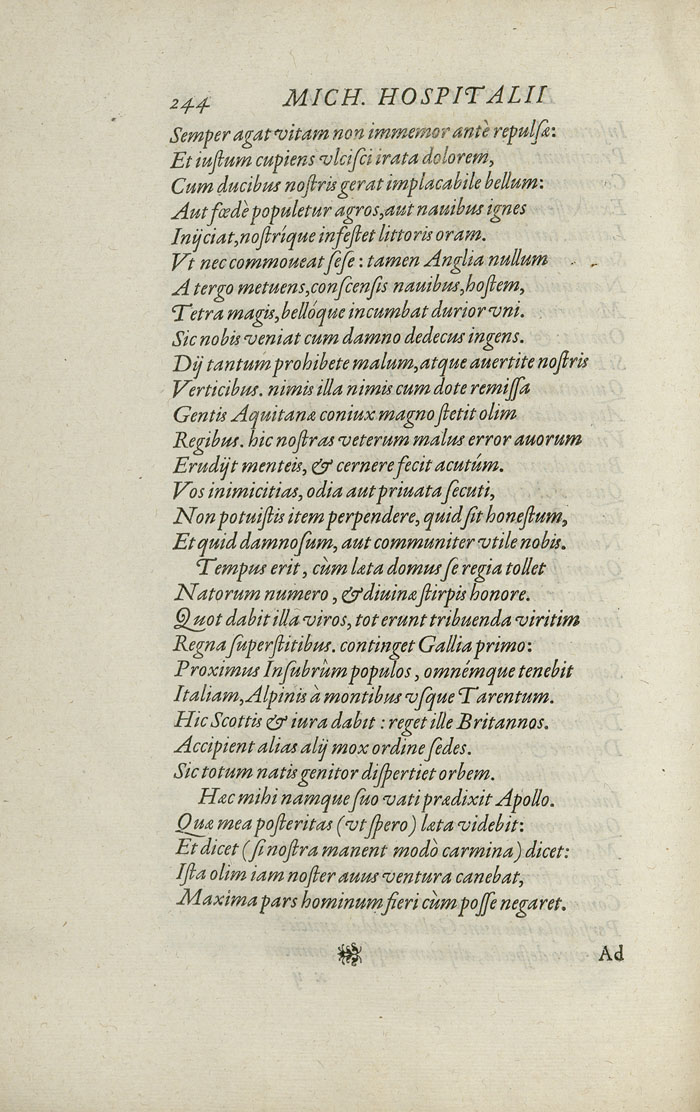 244 MICH. HOSPITALII
Semper agat vitam non immemor antè repulſæ:
Et iuſtum cupiens vlciſci irata dolorem,
Cum ducibus noſtris gerat implacabile bellum:
Aut fœdè populetur agros, aut nauibus ignes
Inijciat, noſtríque infeſtet littoris oram.
Vt nec commoueat ſeſe: tamen Anglia nullum
A tergo metuens, conſcenſis nauibus, hoſtem,
Tetra magis, bellóque incumbat durior vni.
Sic nobis veniat cum damno dedecus ingens.
Dij tantum prohibete malum, atque auertite noſtris
Verticibus. nimis illa nimis cum dote remiſſa
Gentis Aquitanæ coniux magno ſtetit olim
Regibus. hic noſtras veterum malus error auorum
Erudijt menteis, & cernere fecit acutúm.
Vos inimicitias, odia aut priuata ſecuti,
Non potuiſtis item perpendere, quid ſit honeſtum,
Et quid damnoſum, aut communiter vtile nobis.
Tempus erit, cùm læta domus ſe regia tollet
Natorum numero, & diuinæ ſtirpis honore.
Quot dabit illa viros, tot erunt tribuenda viritim
Regna ſuperſtitibus. continget Gallia primo:
Proximus Inſubrûm populos, omnémque tenebit
Italiam, Alpinis à montibus vſque Tarentum.
Hic Scottis & iura dabit: reget ille Britannos.
Accipient alias alij mox ordine ſedes.
Sic totum natis genitor diſpertiet orbem.
Hæc mihi namque ſuo vati prædixit Apollo.
Quæ mea poſteritas (vt ſpero) læta videbit:
Et dicet (ſi noſtra manent modò carmina) dicet:
Iſta olim iam noſter auus ventura canebat,
Maxima pars hominum fieri cùm poſſe negaret.
Ad